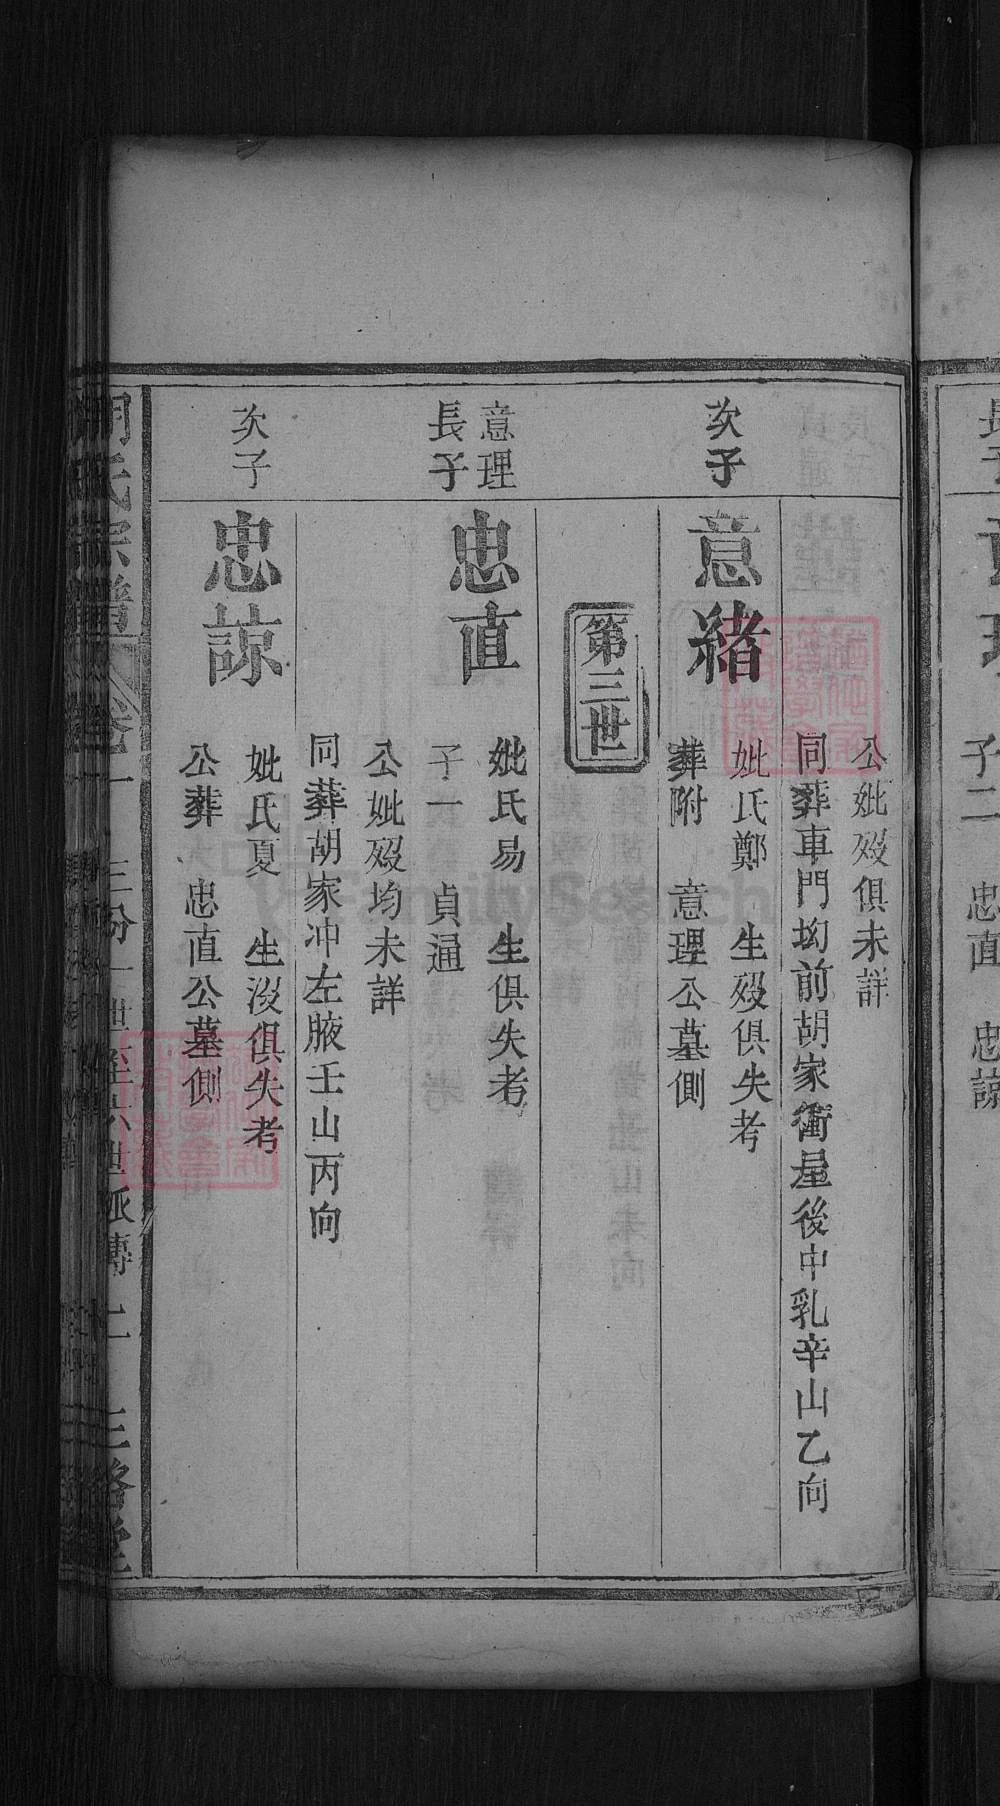 長子
子二 忠直 忠諒
公妣歿俱未詳
同葬車門坳前胡家衝屋後中乳辛山乙向
次子
意緒
妣氏鄭 生歿俱失考
葬附 意理公墓側
第三世
意理
長子
忠直
妣氏易 生俱失考
子一 貞通
公妣歿均未詳
同葬胡家冲左腋壬山丙向
次子
忠諒
妣氏夏 生沒俱失考
公葬 忠直公墓側
氏宗譜 卷一 三份一世至六世派傳
FamilySearch